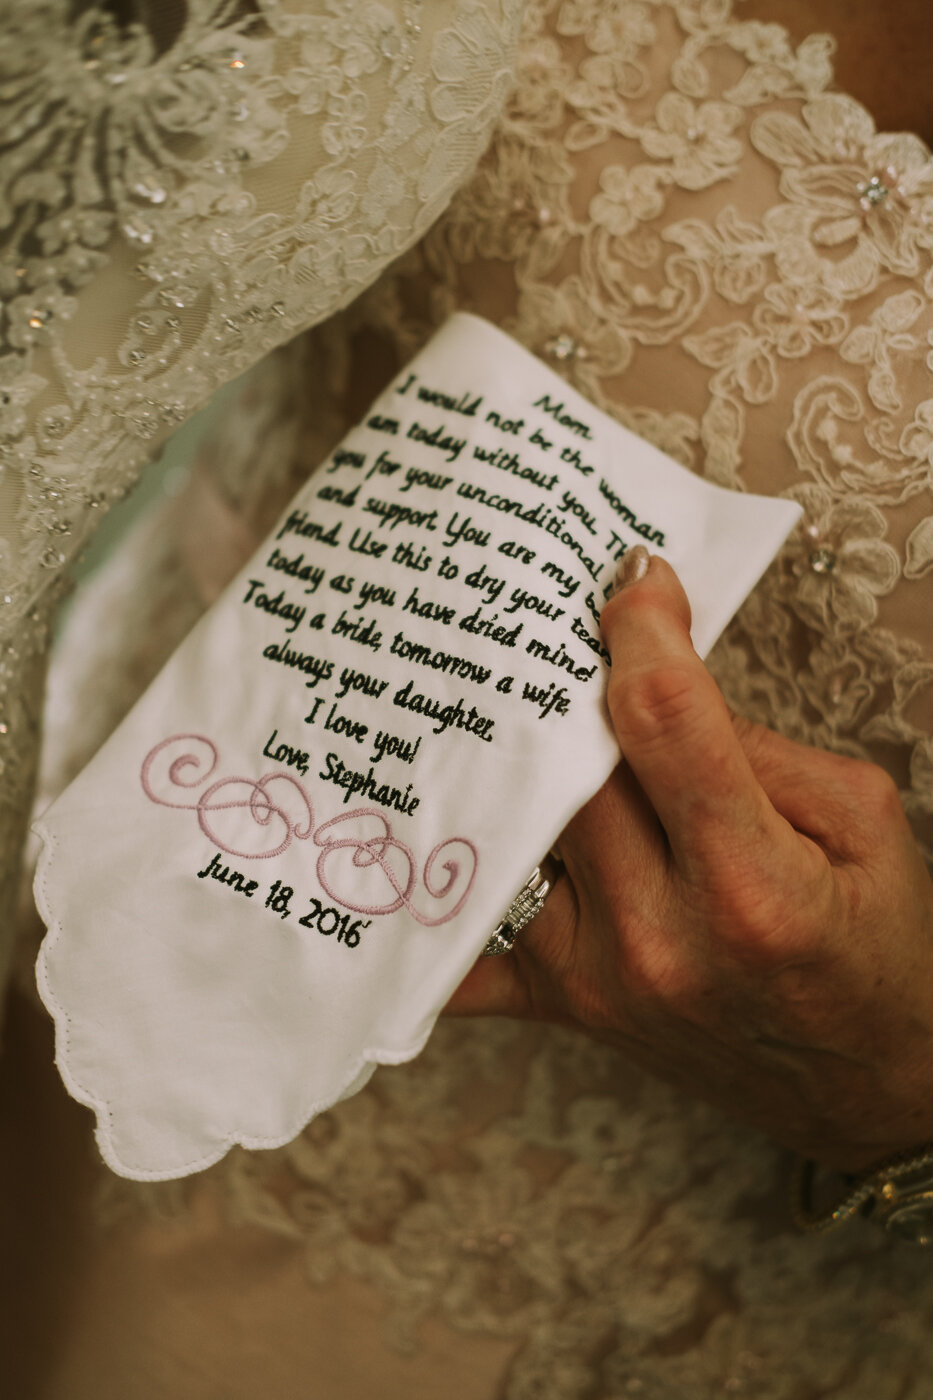 Mom,
I would not be the woman
am today without you.
you for your unconditional
and support. You are my
friend. Use this to dry your
today as you have dried mine!
Today a bride, tomorrow a wife,
always your daughter.
I love you!
Love, Stephanie
June 18, 2016